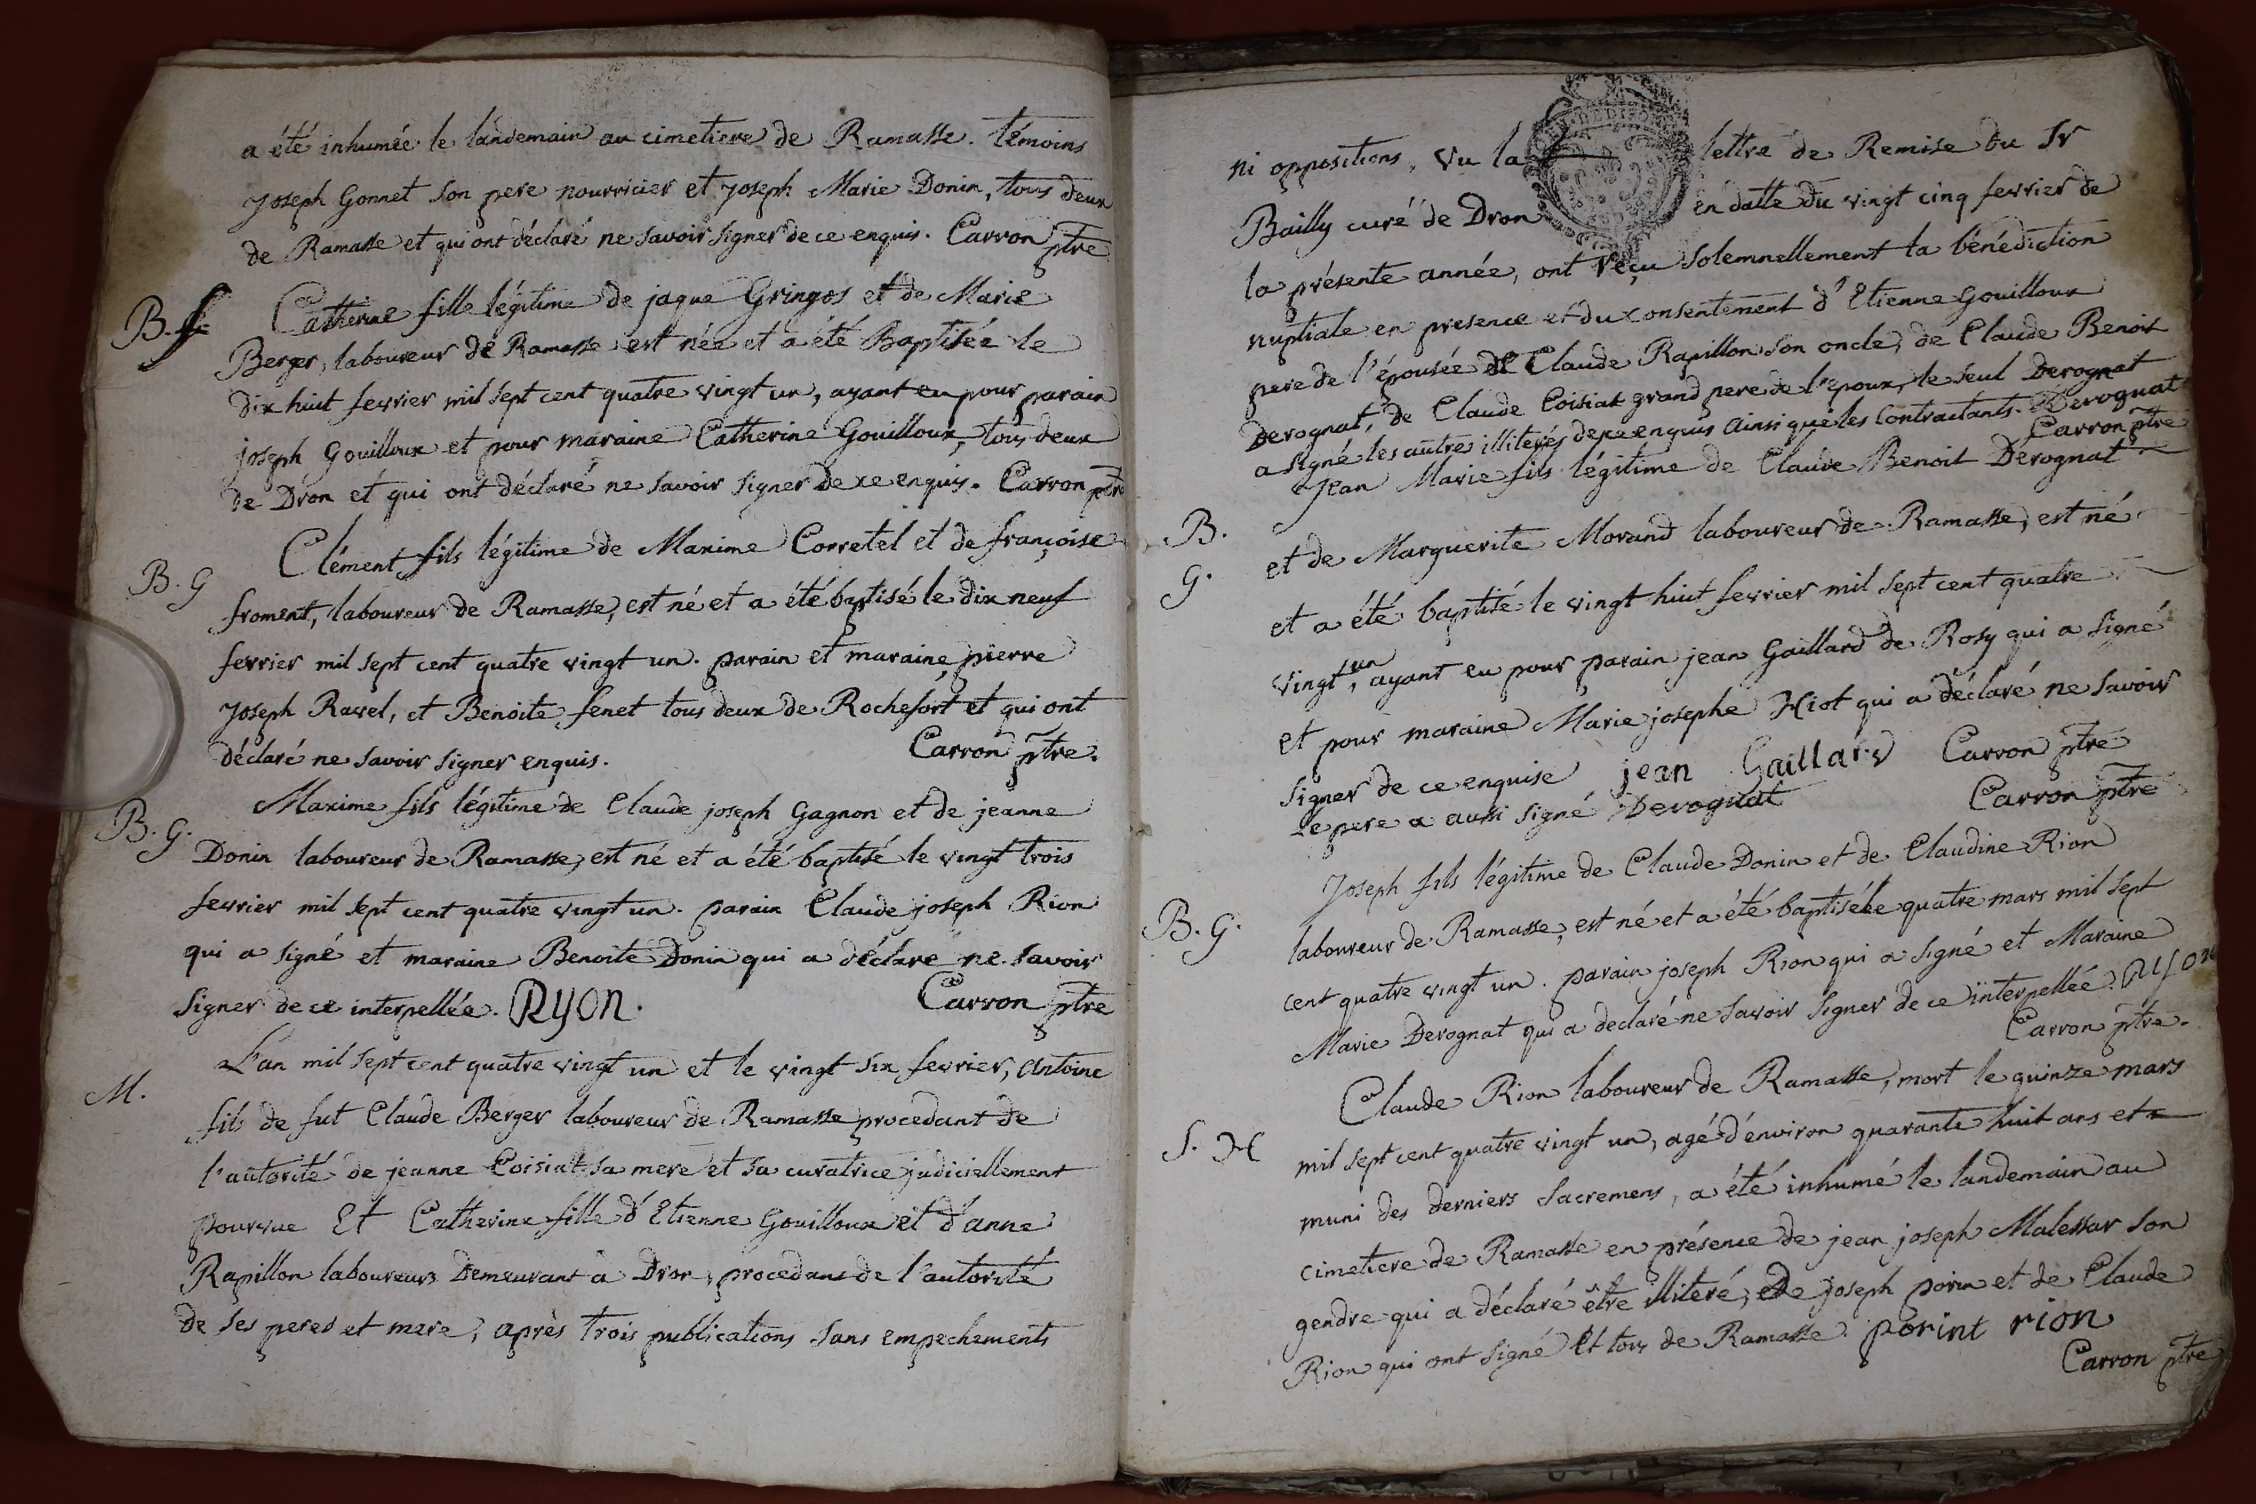 a été inhumée le landemain au cimetiere de Ramasse. témoins
joseph Gonnet son pere nourricier et joseph Marie Donin, tous deux
de Ramasse et qui ont déclaré ne savoir signer de ce enquis. Carron ptre
B. f. Catherine fille légitime de jaque Gringos et de Marie
Berger, laboureur de Ramasse est née et a été Baptisée le
dix huit fevrier mil sept cent quatre vingt un, ayant eu pour parain
joseph Gouilloux et pour maraine Catherine Gouilloux, tous deux
de Dron et qui ont déclaré ne savoir signer de ce enquis. Carron ptre
B. G Clément fils légitime de Maxime Corretel et de françoise
froment, laboureur de Ramasse, est né et a été baptisé le dix neuf
fevrier mil sept cent quatre vingt un. parain et maraine pierre
joseph Ravel, et Benoite fenet tous deux de Rochefort et qui ont
déclaré ne savoir signer enquis. Carron ptre.
B. G. Maxime fils légitime de Claude joseph Gagnon et de jeanne
Donin laboureur de Ramasse, est né et a été baptisé le vingt trois
fevrier mil sept cent quatre vingt un. parain Claude joseph Rion
qui a signé et maraine Benoite Donin qui a déclare ne savoir
signer de ce interpellée. RYON. Carron ptre
M. L'an mil sept cent quatre vingt un et le vingt six fevrier, Antoine
fils de fut Claude Berger laboureur de Ramasse procedant de
l'autorité de jeanne Coisiat sa mere et sa curatrice judiciellement
pourvue Et Catherine fille d'Etienne Gouilloux et d'anne
Rapillon laboureurs Demeurant a Dron, procedant de l'autorité
de ses peres et mere, après trois publications sans empechements
ni oppositions, vu la lettre de Remise du Sr
Bailly curé de Dron en datte du vingt cinq fevrier de
la présente année, ont reçu solemnellement la bénédiction
nuptiale en presence et du consentement d'Etienne Gouilloux
pere de l'épousée de Claude Rapillon son oncle, de Claude Benoit
Derognat, de Claude Coisiat grand pere de l'epoux, le seul Derognat
a signé les autres illiterés de ce enquis ainsi que les Contractants. Derognat
Carron ptre
B. G. Jean Marie fils légitime de Claude Benoit Derognat
et de Marguerite Morand laboureur de Ramasse, est né
et a été baptité le vingt huit fevrier mil sept cent quatre
vingt un, ayant eu pour parain jean Gaillard de Rosy qui a signé
et pour maraine Marie josephe Hiot qui a déclaré ne savoir
signer de ce enquise jean Gaillard Carron ptre
Le pere a aussi signé Derognat Carron ptre
B. G. Joseph fils légitime de Claude Donin et de Claudine Rion
laboureur de Ramasse, est né et a été baptisé le quatre mars mil sept
cent quatre vingt un. parain joseph Rion qui a signé et Maraine
Marie Derognat qui a declaré ne savoir signer de ce interpellée. Ryon
Carron ptre.
S. H Claude Rion laboureur de Ramasse, mort le quinze mars
mil sept cent quatre vingt un, agé d'environ quarante huit ans et
muni des derniers sacremens, a été inhumé le landemain au
cimetiere de Ramasse en présence de jean joseph Malessar son
gendre qui a déclaré être illiteré, de joseph porin et de Claude
Rion qui ont signé Et tous de Ramasse. porint rion
Carron ptre